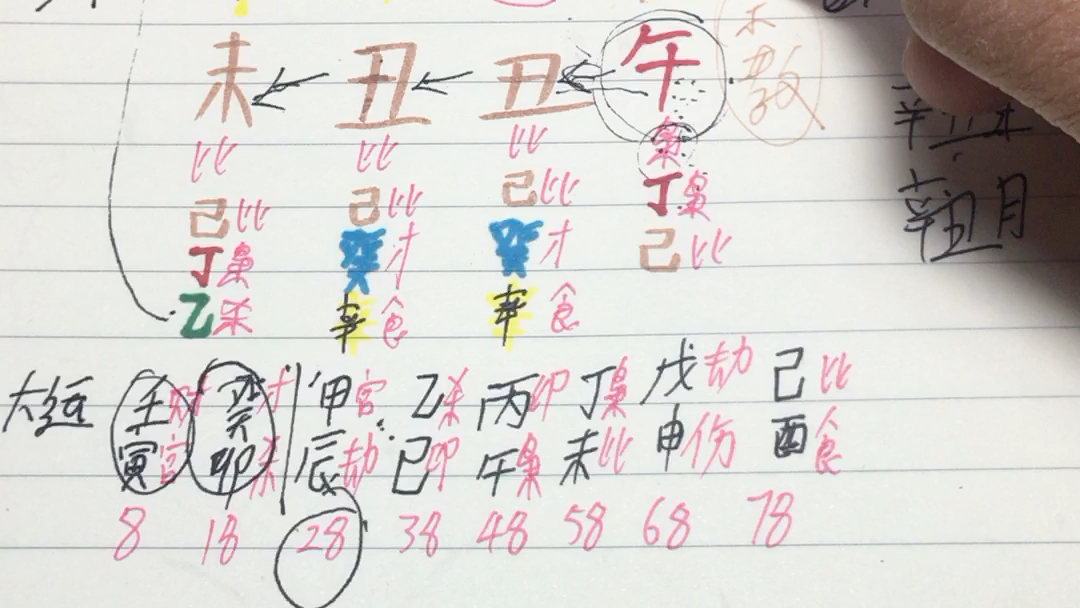 未 丑 丑 午
比 比 比 枭
己比 己比 己比 丁枭
丁枭 癸才 癸才 己比
乙杀 辛食 辛食
辛丑月
大运 壬财 癸才 甲官 乙杀 丙印 丁枭 戊劫 己比
寅官 卯杀 辰劫 巳印 午枭 未比 申伤 酉食
8 18 28 38 48 58 68 78